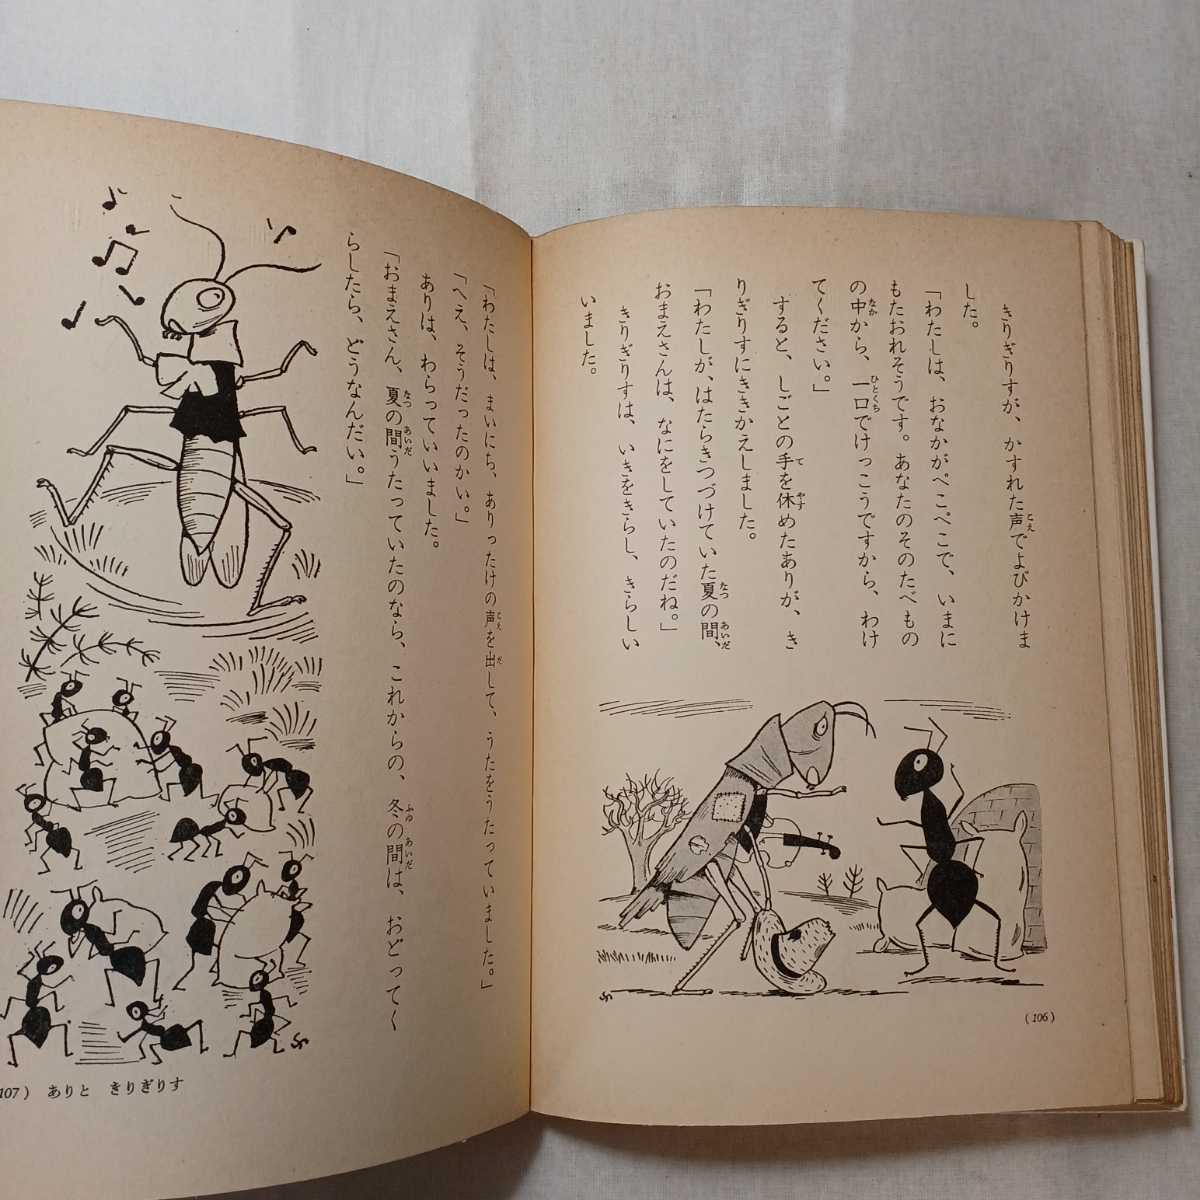 きりぎりすが、かすれた声でよびかけま
した。
「わたしは、おなかがぺこぺこで、いまに
もたおれそうです。あなたのそのたべもの
の中から、一口でけっこうですから、わけ
てください。」
すると、しごとの手を休めたありが、き
りぎりすにききかえしました。
「わたしが、はたらきつづけていた夏の間、
おまえさんは、なにをしていたのだね。」
きりぎりすは、いきをきらし、きらしい
いました。
(106)
「わたしは、まいにち、ありったけの声を出して、うたをうたっていました。」
「へえ、そうだったのかい。」
ありは、わらっていいました。
「おまえさん、夏の間うたっていたのなら、これからの、冬の間は、おどってく
らしたら、どうなんだい。」
107) ありと きりぎりす